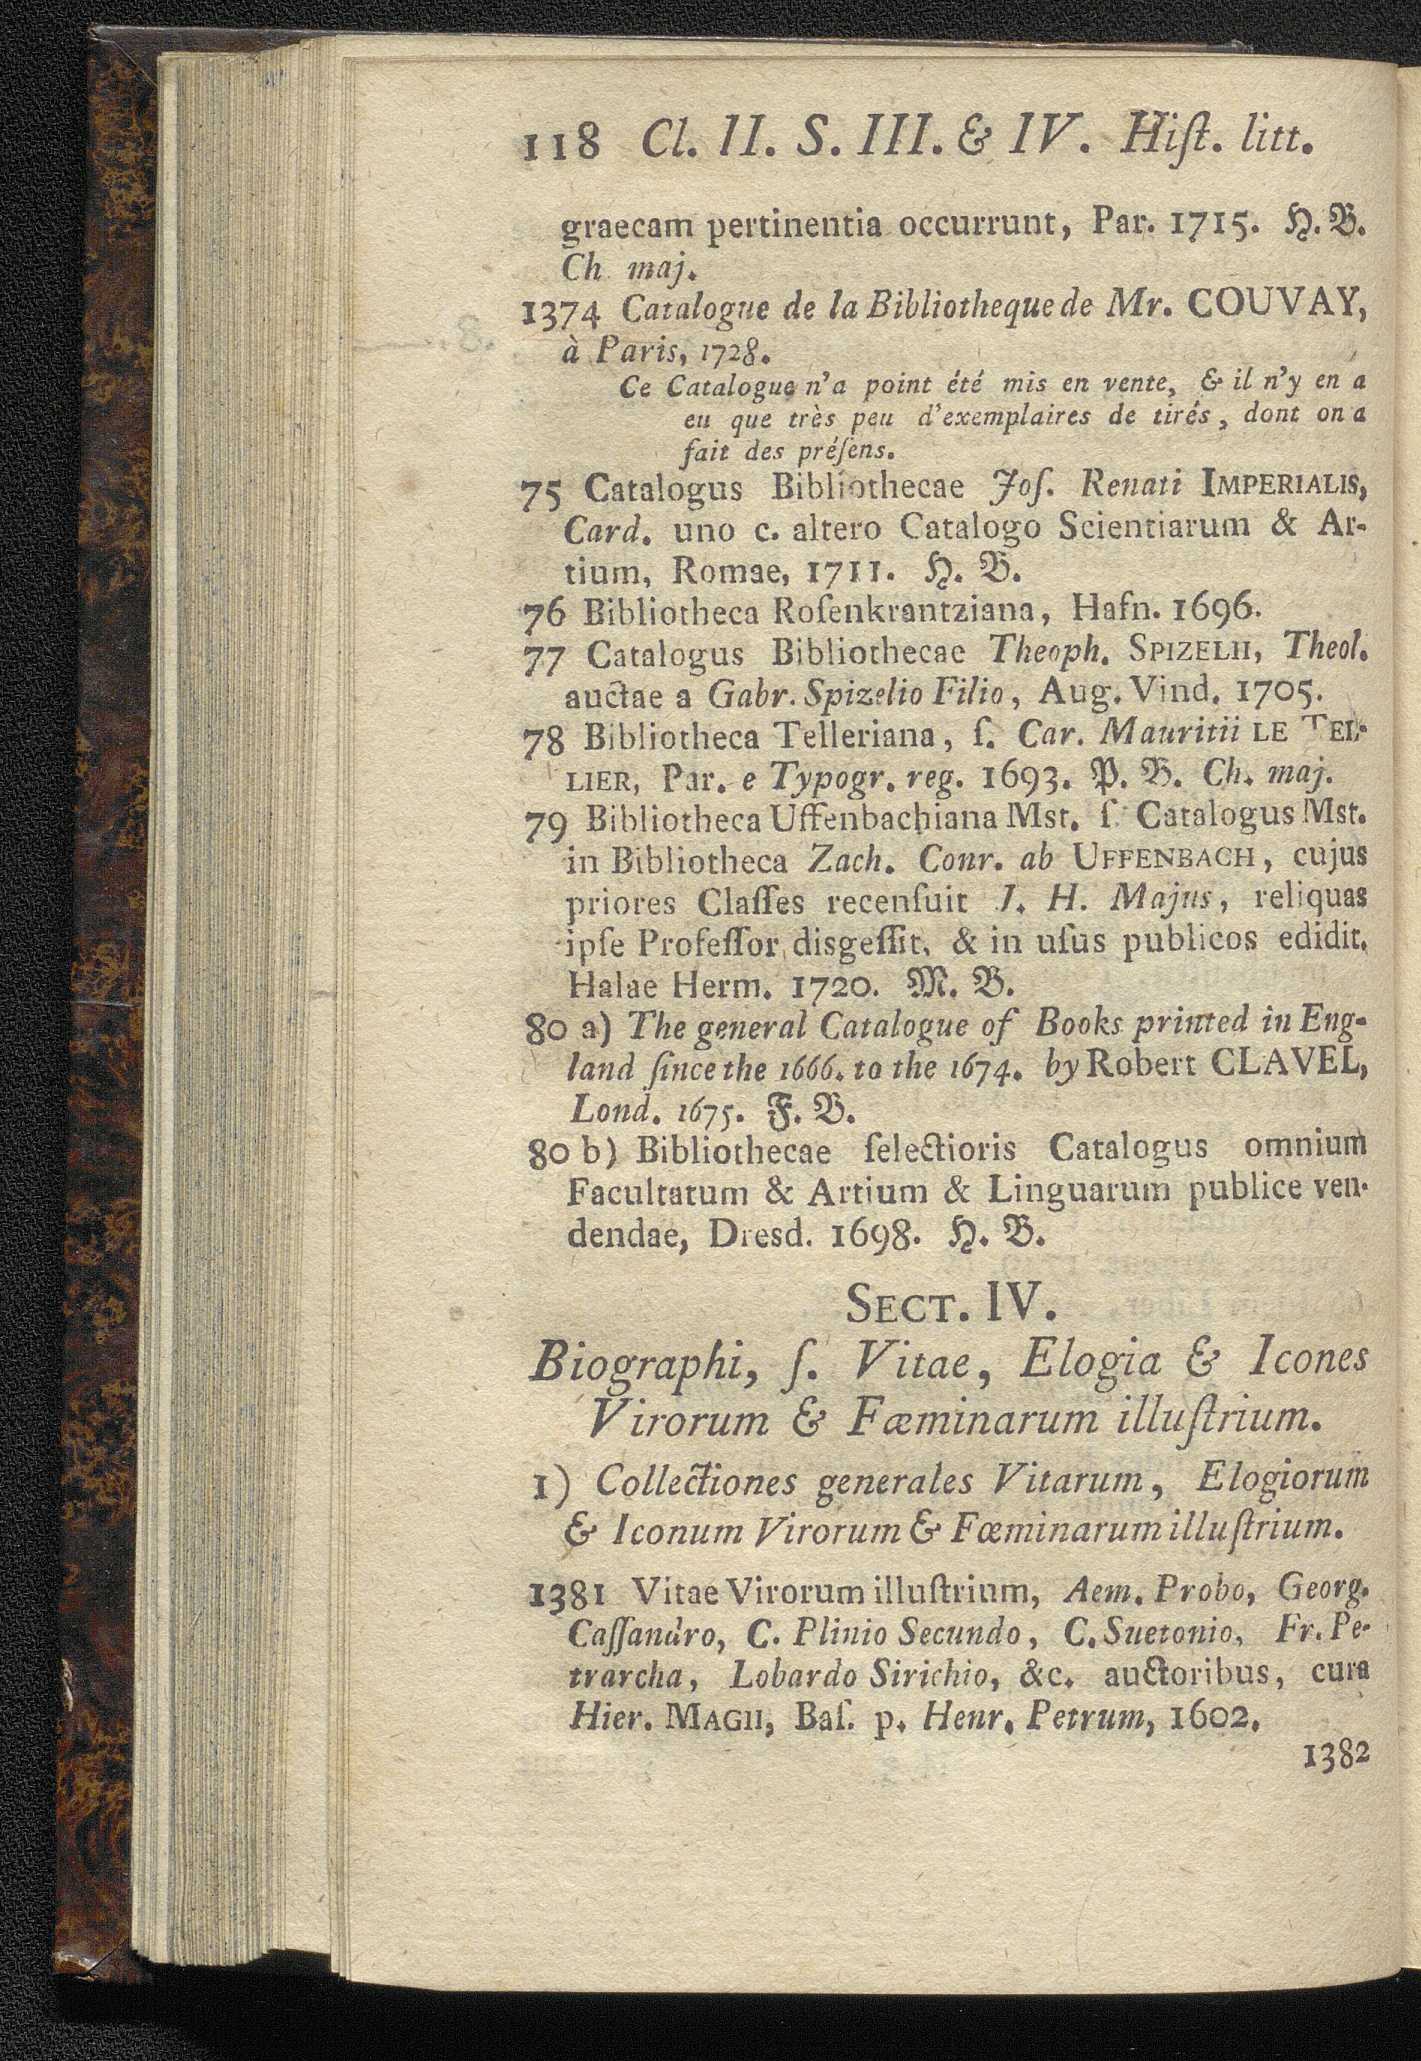 118 Cl. II. S. III. & IV. Hiſt. litt.
graecam pertinentia occurrunt, Par. 1715. H. B.
Ch maj.
1374 Catalogue de la Bibliotheque de Mr. COUVAY,
à Paris, 1728.
Ce Catalogue n'a point été mis en vente, & il n'y en a
eu que très peu d'exemplaires de tirés, dont on a
fait des préſens.
75 Catalogus Bibliothecae Joſ. Renati IMPERIALIS,
Card. uno c. altero Catalogo Scientiarum & Ar-
tium, Romae, 1711. H. B.
76 Bibliotheca Roſenkrantziana, Hafn. 1696.
77 Catalogus Bibliothecae Theoph. SPIZELII, Theol.
auctae a Gabr. Spizelio Filio, Aug. Vind. 1705.
78 Bibliotheca Telleriana, ſ. Car. Mauritii LE TEL-
LIER, Par. e Typogr. reg. 1693. P. B. Ch. maj.
79 Bibliotheca Uffenbachiana Mst. ſ. Catalogus Mst.
in Bibliotheca Zach. Conr. ab UFFENBACH, cujus
priores Claſſes recenſuit J. H. Majus, reliquas
ipſe Profeſſor disgeſſit, & in uſus publicos edidit.
Halae Herm. 1720. M. B.
80 a) The general Catalogue of Books printed in Eng-
land ſince the 1666. to the 1674. by Robert CLAVEL,
Lond. 1675. F. B.
80 b) Bibliothecae ſelectioris Catalogus omnium
Facultatum & Artium & Linguarum publice ven-
dendae, Dresd. 1698. H. B.
SECT. IV.
Biographi, ſ. Vitae, Elogia & Icones
Virorum & Fœminarum illuſtrium.
1) Collectiones generales Vitarum, Elogiorum
& Iconum Virorum & Fœminarum illuſtrium.
1381 Vitae Virorum illuſtrium, Aem. Probo, Georg.
Caſſandro, C. Plinio Secundo, C. Suetonio, Fr. Pe-
trarcha, Lobardo Sirichio, &c. auctoribus, cura
Hier. MAGII, Baſ. p. Henr. Petrum, 1602.
1382